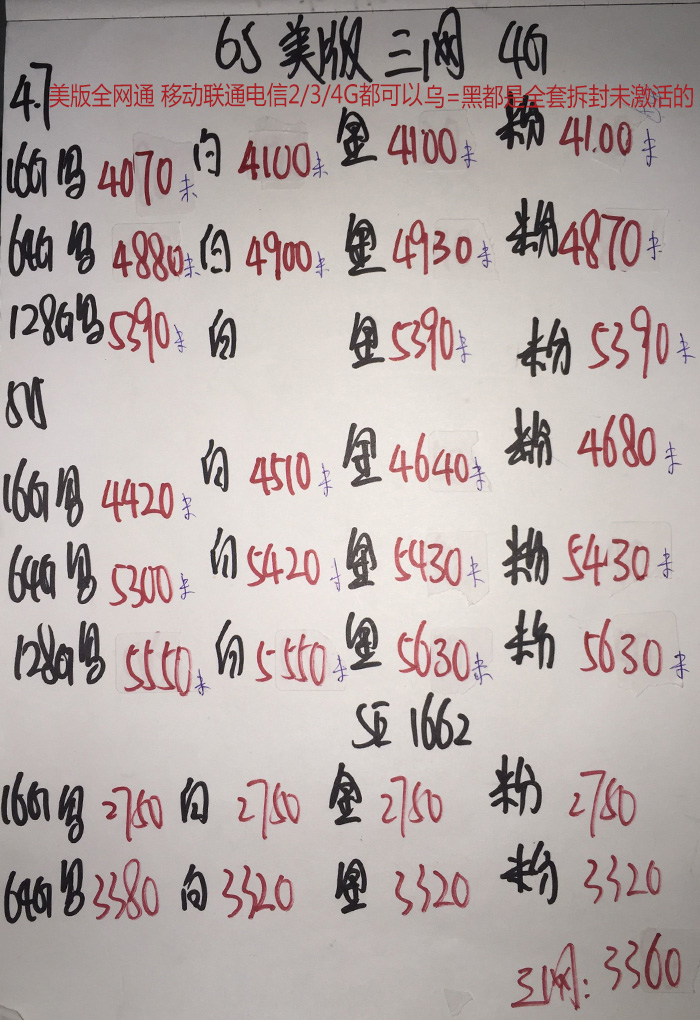 6S 美版 三网 4G
4.7
美版全网通 移动联通电信2/3/4G都可以乌=黑都是全套拆封未激活的
16G 乌 4070未 白 4100未 金 4100未 粉 4100未
64G 乌 4880未 白 4900未 金 4930未 粉 4870未
128G 乌 5390未 白 金 5390未 粉 5390未
16G 乌 4420未 白 4510未 金 4640未 粉 4680未
64G 乌 5300未 白 5420未 金 5430未 粉 5430未
128G 乌 5550未 白 5550未 金 5630未 粉 5630未
SE 1662
16G 乌 2750 白 2750 金 2750 粉 2750
64G 乌 3380 白 3320 金 3320 粉 3320
三网: 3360